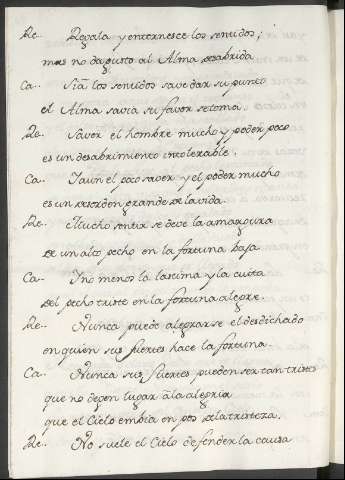 Re. Regala y enternesce los sentidos;
mas no da gusto al Alma desabrida
Ca. Si a los sentidos save dar su punto
el Alma savia su favor se toma.
Re. Saver el hombre mucho y poder poco
es un desabrimiento intolerable.
Ca. I aun el poco saver y el poder mucho
es un desorden grande de la vida.
Re. Mucho sentir se deve la amargura
de un alto pecho en la fortuna baja
Ca. I no menos la lastima y la cuita
del pecho triste en la fortuna alegre.
Re. Nunca puede alegrarse el desdichado
en quien sus fuertes hace la fortuna.
Ca. Nunca sus fuertes pueden ser tan tristes
que no depen lugar a la alegria
que el Cielo embia en pos de la tristeza.
Re. No suele el Cielo defender la causa